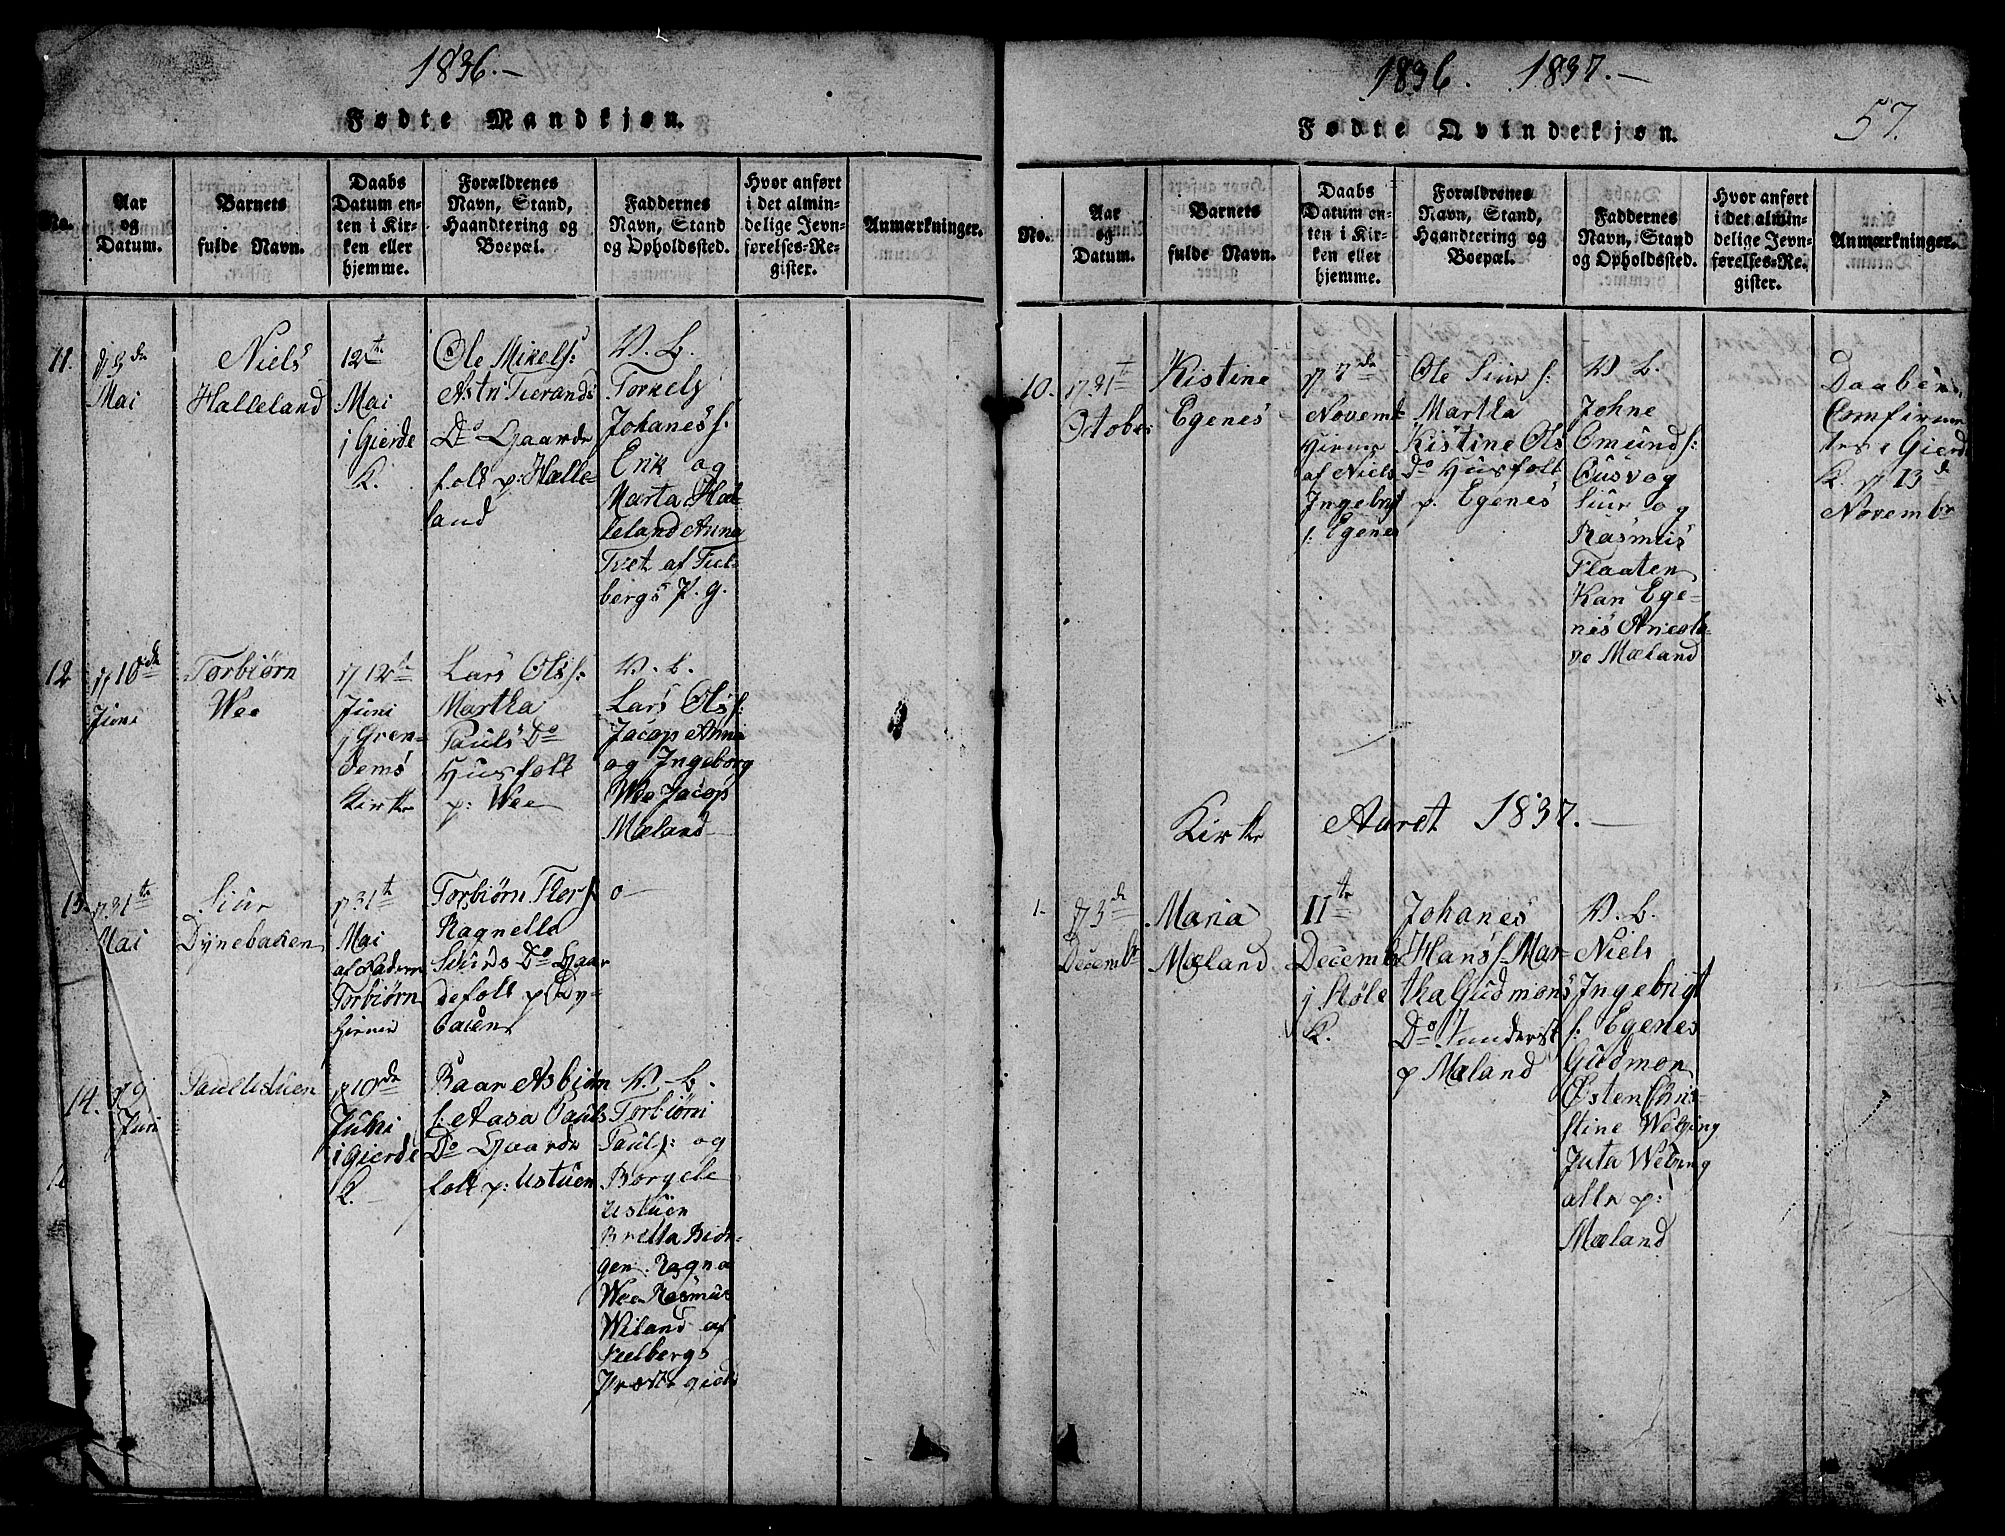 1836.—
Fødte Mandkjøn.
No.
Aar
og
Datum.
Barnets
fulde Navn.
Daabs
Datum en-
ten i Kir-
ken eller
hjemme.
Forældrenes
Navn, Stand,
Haandtering og
Boepæl.
Faddernes
Navn, Stand
og Opholdssted.
Hvor anført
i det almin-
delige Jevn-
førelses-Re-
gister.
Anmærkninger.
11.
Mai
Niels
Halleland
12te
Mai
j Gierde
K.
Ole Mikels:
Astri
Do Gaarde
folk p: Halle-
land
V. L.
Torkels
Johanes f.
Erik og
Marta Hal-
leland Anna
Tvet af
bergs P. g.
12
d 10de
Juni
Torbiørn
Wee
d 12te
Juni
j Gren-
dems
Kirke
Lars Ols f:
Martha
Pauls Do
Husfolk
p: Wee
V. L.
Lars Ols f:
Jacop Anna
og Ingeborg
Wee Jacop
Mæland
13.
d 31te
Mai
Siur
d 31te
Mai
af Fadern
Torbiørn
Torbiørn
Ragnella
Siurds Do Gaar
defolk p Dy-
o—
14.
d 9
Juni
Paul Ustuen
d 10de
i Gierde
K.—
Baar Asbiørn
f: Aasa Pauls
Do Gaarde
folk p: Ustuen
V. L.
Torbiørn
Pauls f: og
Borgele
Ustuen
Brella Biør-
gen Ragna
Wee Rasmus
Wiland af
Fielbergs
Præste gield
1836. 1837.—
57.
Fødte Qvindekjøn.
No.
Aar
og
Datum.
Barnets
fulde Navn.
Daabs
Datum en-
ten i Kir-
ken eller
hjemme.
Forældrenes
Navn, Stand,
Haandtering og
Boepæl.
Faddernes
Navn, Stand
og Opholdssted.
Hvor anført
i det almin-
delige Jevn-
førelses-Re-
gister.
Anmærkninger.
10.
d 31te
Otober
Kistine
Egenes
d 7de
Novemb
af Niels
Ingebrigt
f. Egenes
Ole Siur f:
Martha
Kistine Ols
Do Husfolk
p. Egenes
V. L.
Johne
Omund f:
Siur og
Rasmus
Flaaten
Kari Ege-
nes
Mæland
Daaben
K. d 13d
Novembr
Kirke
Aaret 1837.—
1.
d 3de
Decembr
Maria
Mæland
11te
Decembr
j Støle
K.
Johanes
Hans f. Mar-
tha Gudmons
Do
p Mæland
V. L.
Niels
Ingebrigt
f. Egenes
Gudmon
Østen f Kri-
stine
Juta
alle p:
Mæland